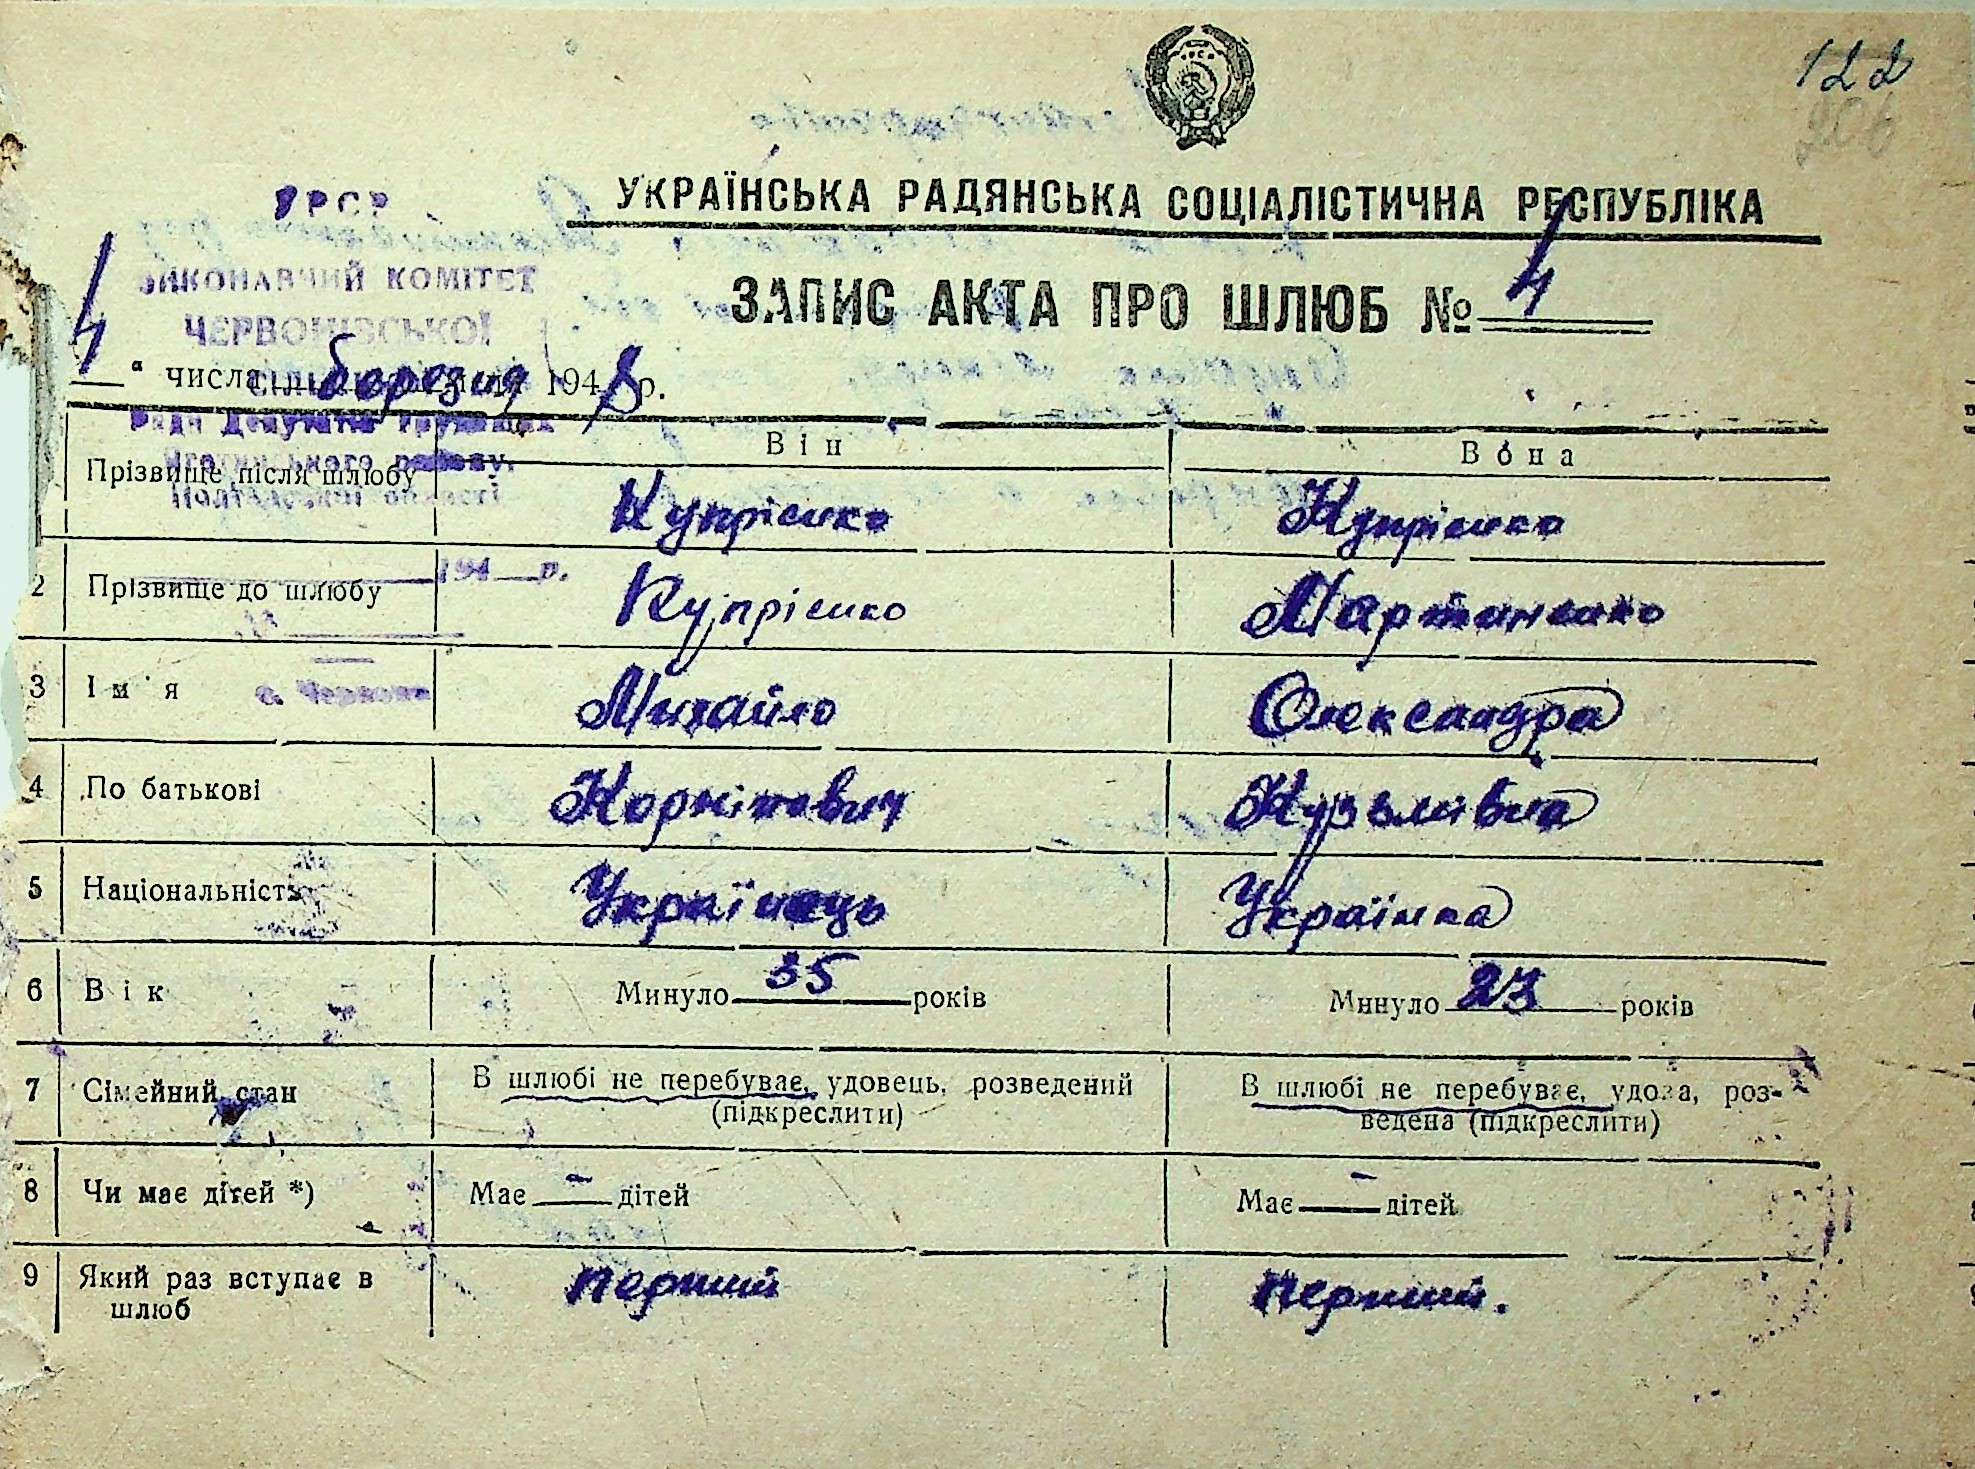 122
206
УКРАЇНСЬКА РАДЯНСЬКА СОЦІАЛІСТИЧНА РЕСПУБЛІКА
УРСР
ВИКОНАВЧИЙ КОМІТЕТ
ЧЕРВОНІВСЬКОЇ
Ради Депутатів Трудящих
району,
Полтавської області
194 р.
ЗАПИС АКТА ПРО ШЛЮБ № 4
4 " числа березня 1948 р.
Він Вона
Прізвище після шлюбу Купрієнко Купрієнко
2 Прізвище до шлюбу Купрієнко Мартиненко
3 Ім'я Михайло Олександра
4 По батькові Корнійович Кузьмівна
5 Національність Українець Українка
6 Вік Минуло 35 років Минуло 23 років
7 Сімейний стан В шлюбі не перебуває, удовець, розведений В шлюбі не перебуває, удова, роз-
(підкреслити) ведена (підкреслити)
8 Чи має дітей *) Має - дітей Має - дітей
9 Який раз вступає в перший перший.
шлюб